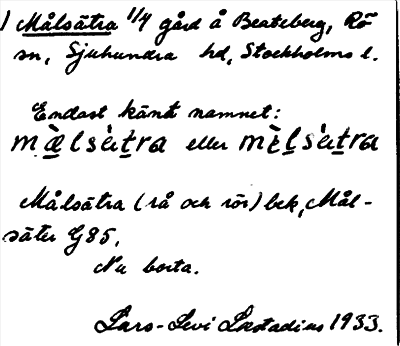 1 Målsätra 1/4 gård å Beateberg, Rö
sn, Sjuhundra hd, Stockholms l.
Endast känt namnet:
mæ̀lsàtra eller mɛ̀lsàtra
Målsätra (rå och rör) bek, Mål-
säter G85.
Nu borta.
Lars-Levi Læstadius 1933.